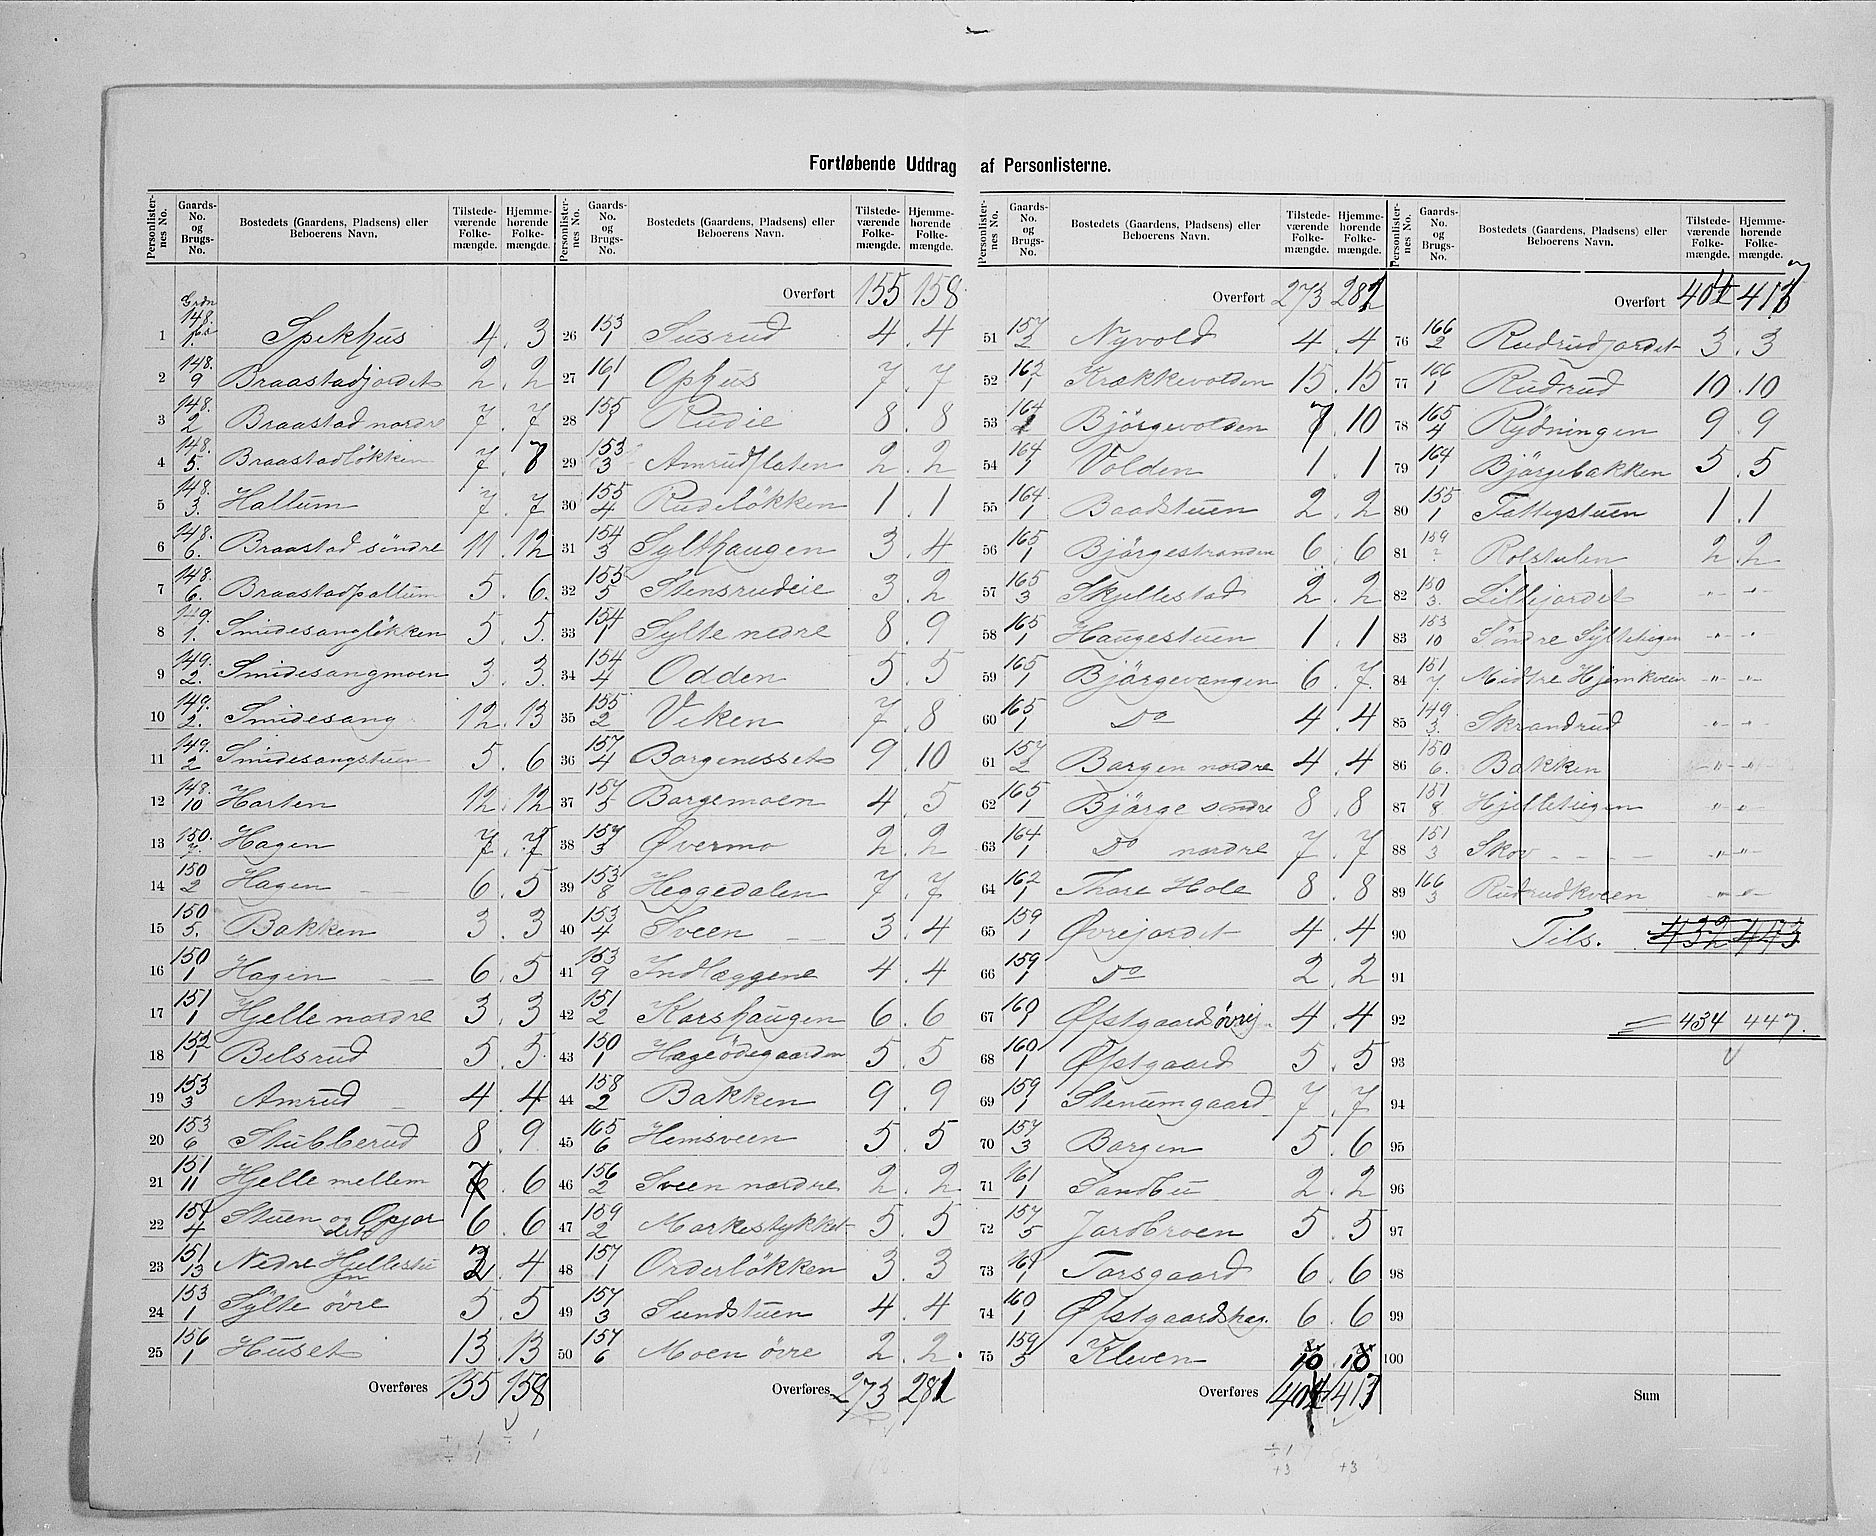 Fortløbende Uddrag af Personlisterne.
Personlister-nes No. | Gaards-No. og Brugs-No. | Bostedets (Gaardens, Pladsens) eller Beboerens Navn. | Tilstede-værende Folke-mængde. | Hjemme-hørende Folke-mængde.
1 148. Spikhus 4. 3
2 148. 9 Braastadjordet 2. 2
3 148. 2 Braastad nordre 7. 7
4 148. 5. Braastadløkken 7. 8
5 148. 3. Hallum 7. 7
6 148. 6. Braastad søndre 11. 12
7 148. 6. Braastadhallum 5. 6.
8 149. 1. Smidesangløkken 5. 5.
9 149. 2. Smidesangmoen 3. 3.
10 149. 2. Smidesang 12. 13
11 149. 2 Smidesangstuen 5. 6
12 148. 10 Harten 12. 12
13 150. Hagen 7. 7
14 150 2 Hagen 6. 5
15 150 5. Bakken 3. 3
16 150 1 Hagen 6. 5
17 151 1 Hjelle nordre 3. 3
18 152 1 Belsrud 5. 5.
19 153 3 Amrud 4. 4
20 153 6 Stubberud 8. 9
21 151 11 Hjelle mellem 6
22 151 4 Stuen og Opjordet 6. 6
23 151 13 Nedre Hjellestuen 4
24 153 1 Sylte øvre 5. 5
25 156 1 Huset 13. 13
Overføres 155 158
Personlister-nes No. | Gaards-No. og Brugs-No. | Bostedets (Gaardens, Pladsens) eller Beboerens Navn. | Tilstede-værende Folke-mængde. | Hjemme-hørende Folke-mængde.
Overført 155 158
26 153 1 Susrud 4. 4
27 161 1 Ophus 7. 7
28 155 1 Rudie 8. 8
29 153 3 Amrudflaten 2. 2
30 155 4 Rudeløkken 1. 1
31 154 3 Sylthaugen 3. 4
32 155 5 Stensrudeie 3. 2
33 154 1 Sylte nedre 8. 9
34 154 4 Odden 5. 5
35 155 2 Viken 7. 8
36 157 4 Borgenesset 9. 10
37 157 5 Borgemoen 4. 5
38 157 3 Øvermo 2. 2
39 153 8 Heggedalen 7. 7
40 153 4 Sveen 3. 4
41 153 9 Indlæggene 4. 4
42 151 2 Korshaugen 6. 6
43 150 1 Hageødegaarden 5. 5
44 158 2 Bakken 9. 9
45 165 6 Hemsveen 5. 5
46 156 2 Sveen nordre 2. 2
47 159 2 Markestykket 5. 5
48 157 1 Orderløkken 3. 3
49 157 3 Sundstuen 4. 4
50 157 6 Moen øvre 2. 2.
Overføres 273 281
Personlister-nes No. | Gaards-No. og Brugs-No. | Bostedets (Gaardens, Pladsens) eller Beboerens Navn. | Tilstede-værende Folke-mængde. | Hjemme-hørende Folke-mængde.
Overført 273 281
51 157 2 Nyvold 4. 4
52 162 1 Krækkevolden 15. 15
53 164 Bjørgevolden 7. 10
54 164 1 Volden 1. 1
55 164 1 Baadstuen 2. 2
56 165 1 Bjørgestranden 6. 6
57 165 3 Skjellestad 2. 2
58 165 1 Haugestuen 1. 1
59 165 1 Bjørgevangen 6. 7.
60 165 1 Do 4. 4
61 157 2 Borgen nordre 4. 4
62 165 1 Bjørge søndre 8. 8
63 164 1 Do nordre 7. 7
64 162 1 Thore Hole 8. 8
65 159 1 Øvrejordet 4. 4
66 159 1 Do 2. 2
67 160 1 Øfstgaard øvrej. 4. 4
68 160 1 Øfstgaard 5. 5
69 159 1 Stenumgaard 7. 7
70 157 3 Borgen 5. 6
71 161 1 Sandbu 2. 2
72 157 5 Jordbroen 5. 5
73 161 1 Torsgaard 6. 6
74 160 1 Øfstgaardshag. 6. 6
75 159 5 Kleven 10. 10
Overføres 404 417
Personlister-nes No. | Gaards-No. og Brugs-No. | Bostedets (Gaardens, Pladsens) eller Beboerens Navn. | Tilstede-værende Folke-mængde. | Hjemme-hørende Folke-mængde.
Overført 404 417
76 166 2 Rudrudjordet 3. 3
77 166 1 Rudrud 10. 10
78 165 4 Rydningen 9. 9
79 164 1 Bjørgebakken 5. 5
80 155 1 Fattigstuen 1. 1
81 159 Rolstulen 2. 2
82 150 3. Lillejordet -"- -"-
83 153 10 Søndre Syltetugen -"- -"-
84 151 7. Midtre Hjemkveen -"- -"-
85 149 3. Skrandrud -"- -"-
86 150 6. Bakken -"- -"-
87 151 8. Hjelletugen -"- -"-
88 151 3 Skov - - - - -"- -"-
89 166 3 Rudrudkveen -"- -"-
90 Tils. 432 443
91
92 = 434 447.
93
94
95
96
97
98
99
100
Sum
÷ 1 ÷ 1
÷ 1
÷ 1
+3 +3